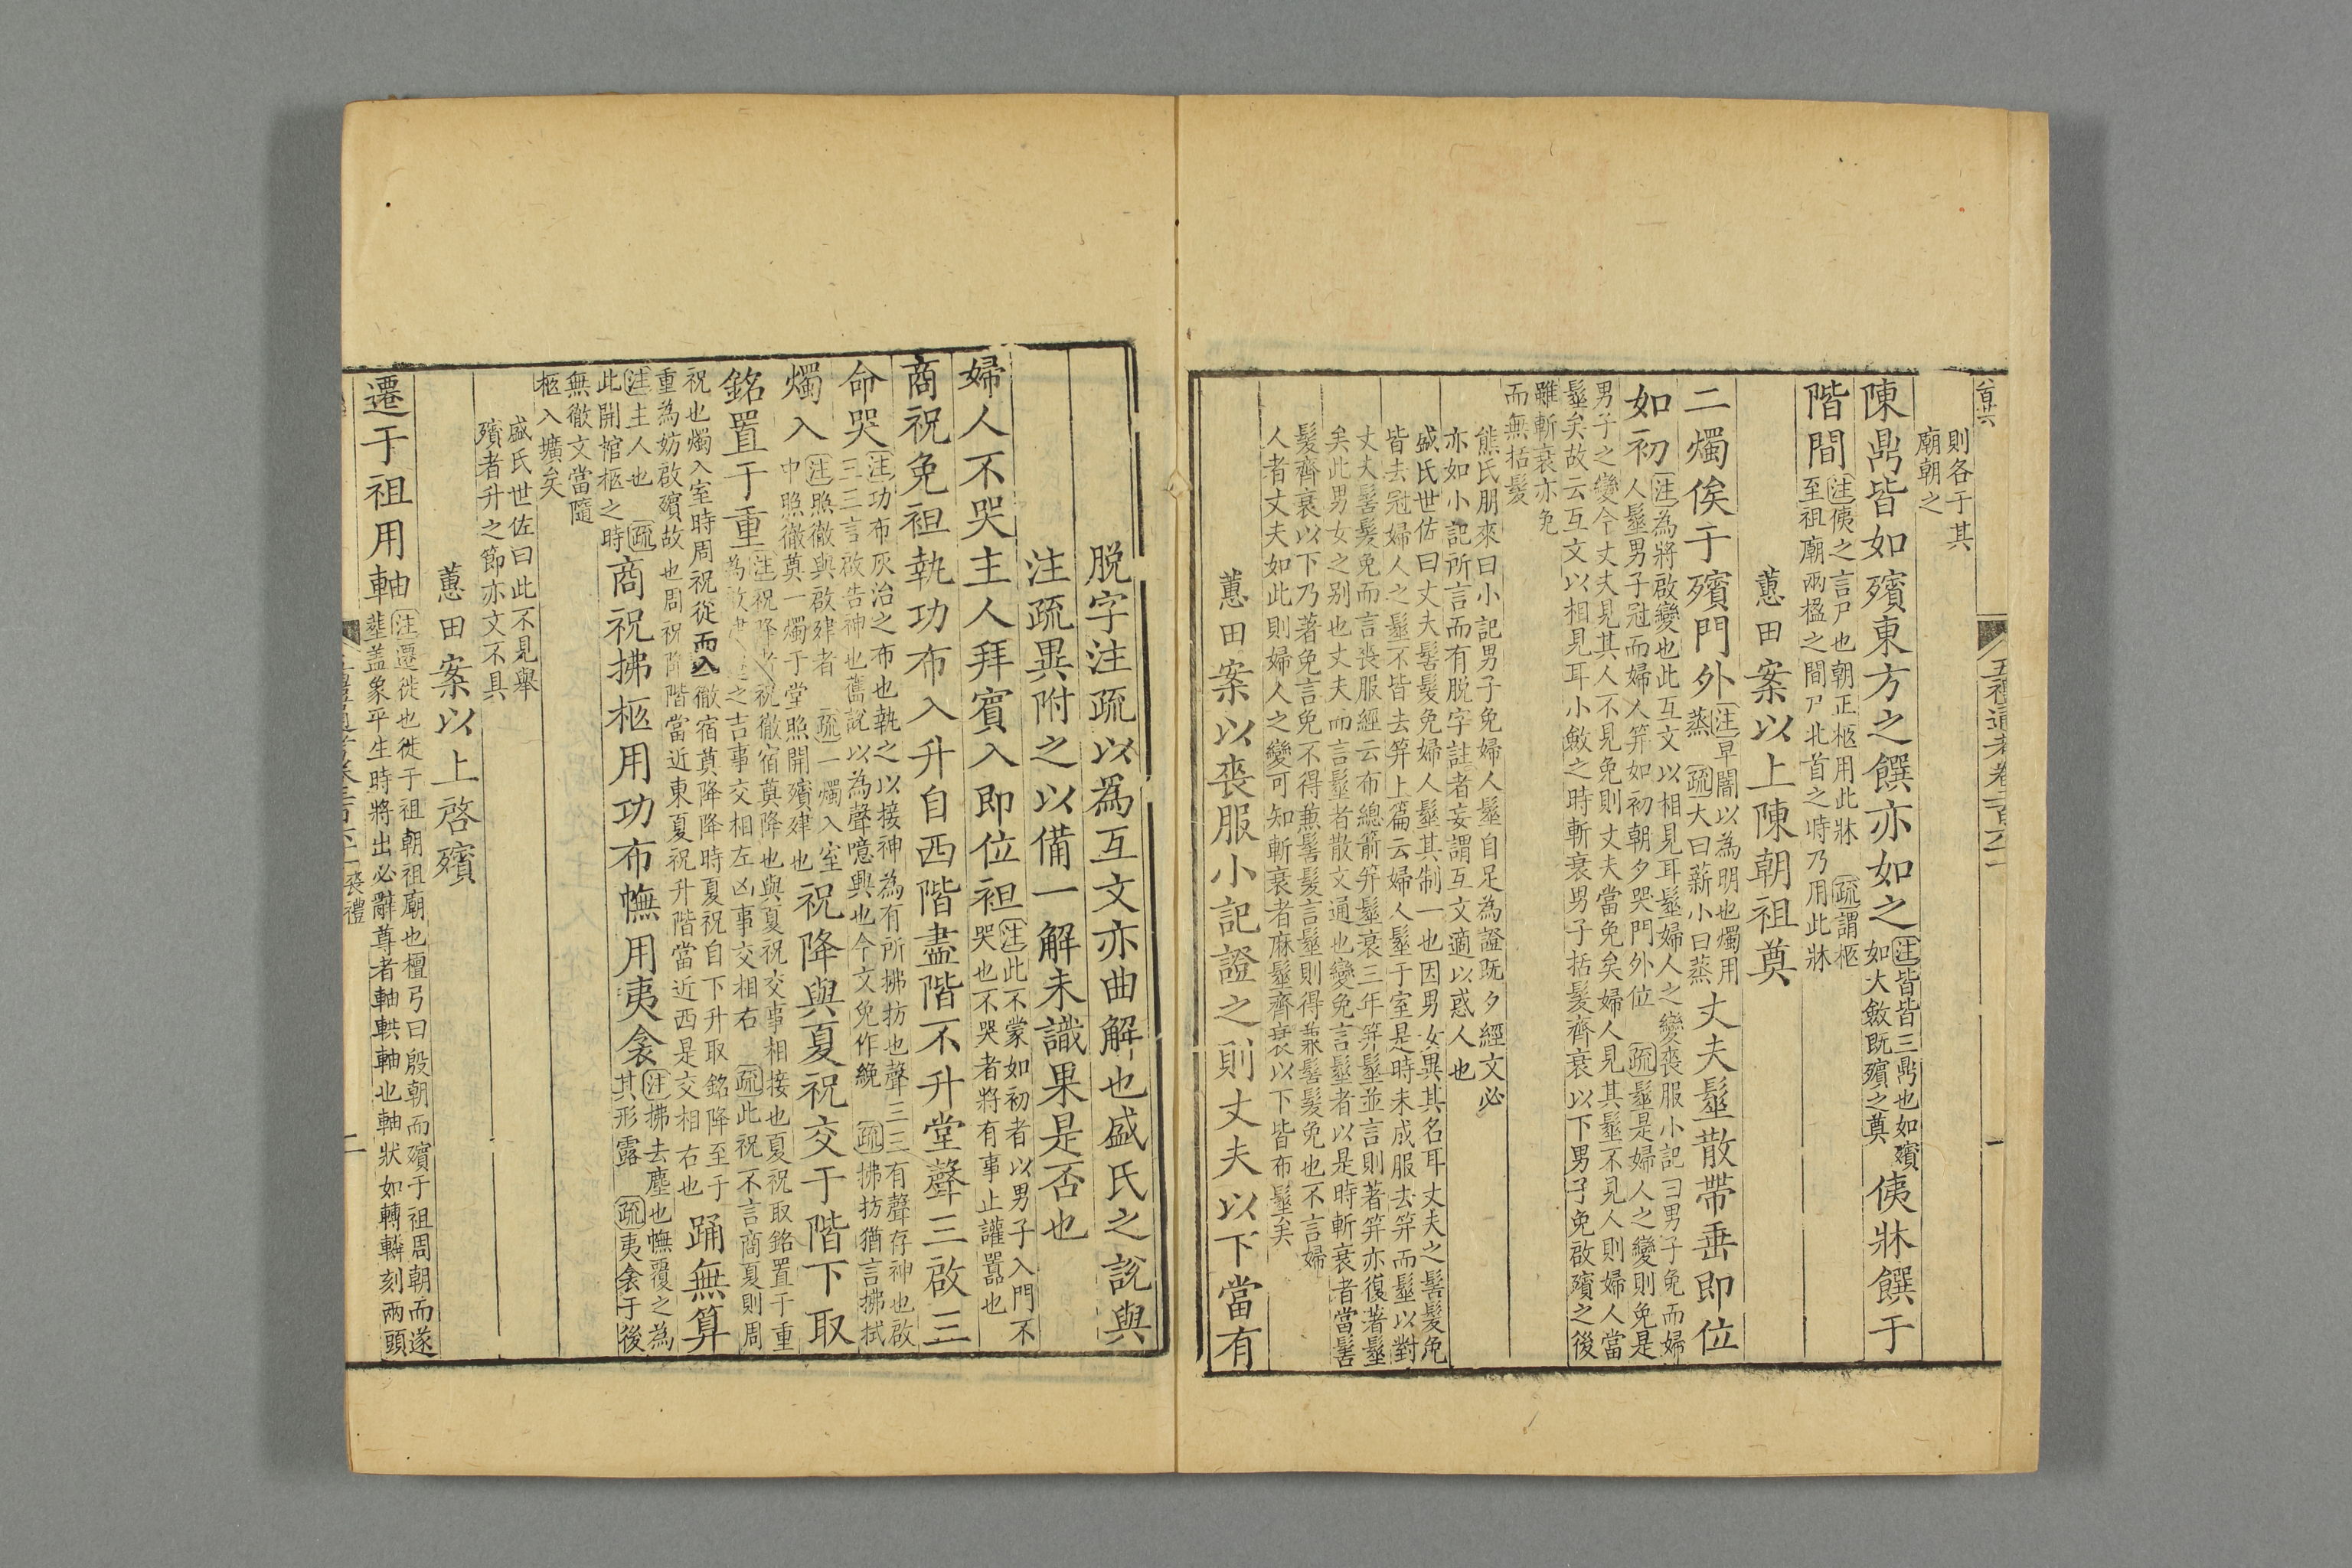 五禮通考卷二百六十一
一
則各于其
廟朝之
陳鼎皆如殯東方之饌亦如之
注皆皆三鼎也如殯
如大斂既殯之奠
侇牀饌于
階間
注侇之言尸也朝正柩用此牀 疏謂柩
至祖廟兩楹之間尸北首之時乃用此牀
蕙田案以上陳朝祖奠
二燭俟于殯門外
注早闇以為明也燭用
蒸 疏大曰薪小曰蒸
丈夫髽散帶垂即位
如初
注為將啟變也此互文以相見耳髽婦人之變喪服小記曰男子免而婦
人髽男子冠而婦人筓如初朝夕哭門外位 疏髽是婦人之變則免是
男子之變今丈夫見其人不見免則丈夫當免矣婦人見其髽不見人則婦人當
髽矣故云互文以相見耳小斂之時斬衰男子括髮齊衰以下男子免啟殯之後
雖斬衰亦免
而無括髮
熊氏朋來曰小記男子免婦人髽自足為證既夕經文必
亦如小記所言而有脫字註者妄謂互文適以惑人也
盛氏世佐曰丈夫髻髮免婦人髽其制一也因男女異其名耳丈夫之髻髮免
皆去冠婦人之髽不皆去筓上篇云婦人髽于室是時未成服去筓而髽以對
丈夫髻髮免而言喪服經云布總箭筓髽衰三年筓髽並言則著筓亦復著髽
矣此男女之别也丈夫而言髽者散文通也變免言髽者以是時斬衰者當髻
髮齊衰以下乃著免言免不得兼髻髮言髽則得兼髻髮免也不言婦
人者丈夫如此則婦人之變可知斬衰者麻髽齊衰以下皆布髽矣
蕙田案以喪服小記證之則丈夫以下當有
脱字注疏以為互文亦曲解也盛氏之說與
注疏異附之以備一解未識果是否也
婦人不哭主人拜賓入即位袒
注此不蒙如初者以男子入門不
哭也不哭者將有事止讙囂也
商祝免袒執功布入升自西階盡階不升堂聲三啟三
命哭
注功布灰治之布也執之以接神為有所拂拭也聲三三有聲存神也啟
三三言啟告神也舊說以為聲噫興也今文免作絻 疏拂拭猶言拂拭
燭入
注照徹與啟肂者 疏一燭入室
中照徹奠一燭于堂照開殯肂也
祝降與夏祝交于階下取
銘置于重
注祝降者祝徹宿奠降也與夏祝交事相接也夏祝取銘置于重
為啟肂遷之吉事交相左凶事交相右 疏此祝不言商夏則周
祝也燭入室時周祝從而入徹宿奠降降時夏祝自下升取銘降至于
重為妨啟殯故也周祝降階當近東夏祝升階當近西是交相右也
踊無算
注主人也 疏
此開棺柩之時
商祝拂柩用功布幠用夷衾
注拂去塵也幠覆之為
其形露 疏夷衾于後
無徹文當隨
柩入壙矣
盛氏世佐曰此不見舉
殯者升之節亦文不具
蕙田案以上啓殯
遷于祖用軸
注遷徙也徙于祖朝祖廟也檀弓曰殷朝而殯于祖周朝而遂
葬盖象平生時將出必辭尊者軸輁軸也軸狀如轉轔刻兩頭
喪禮
二